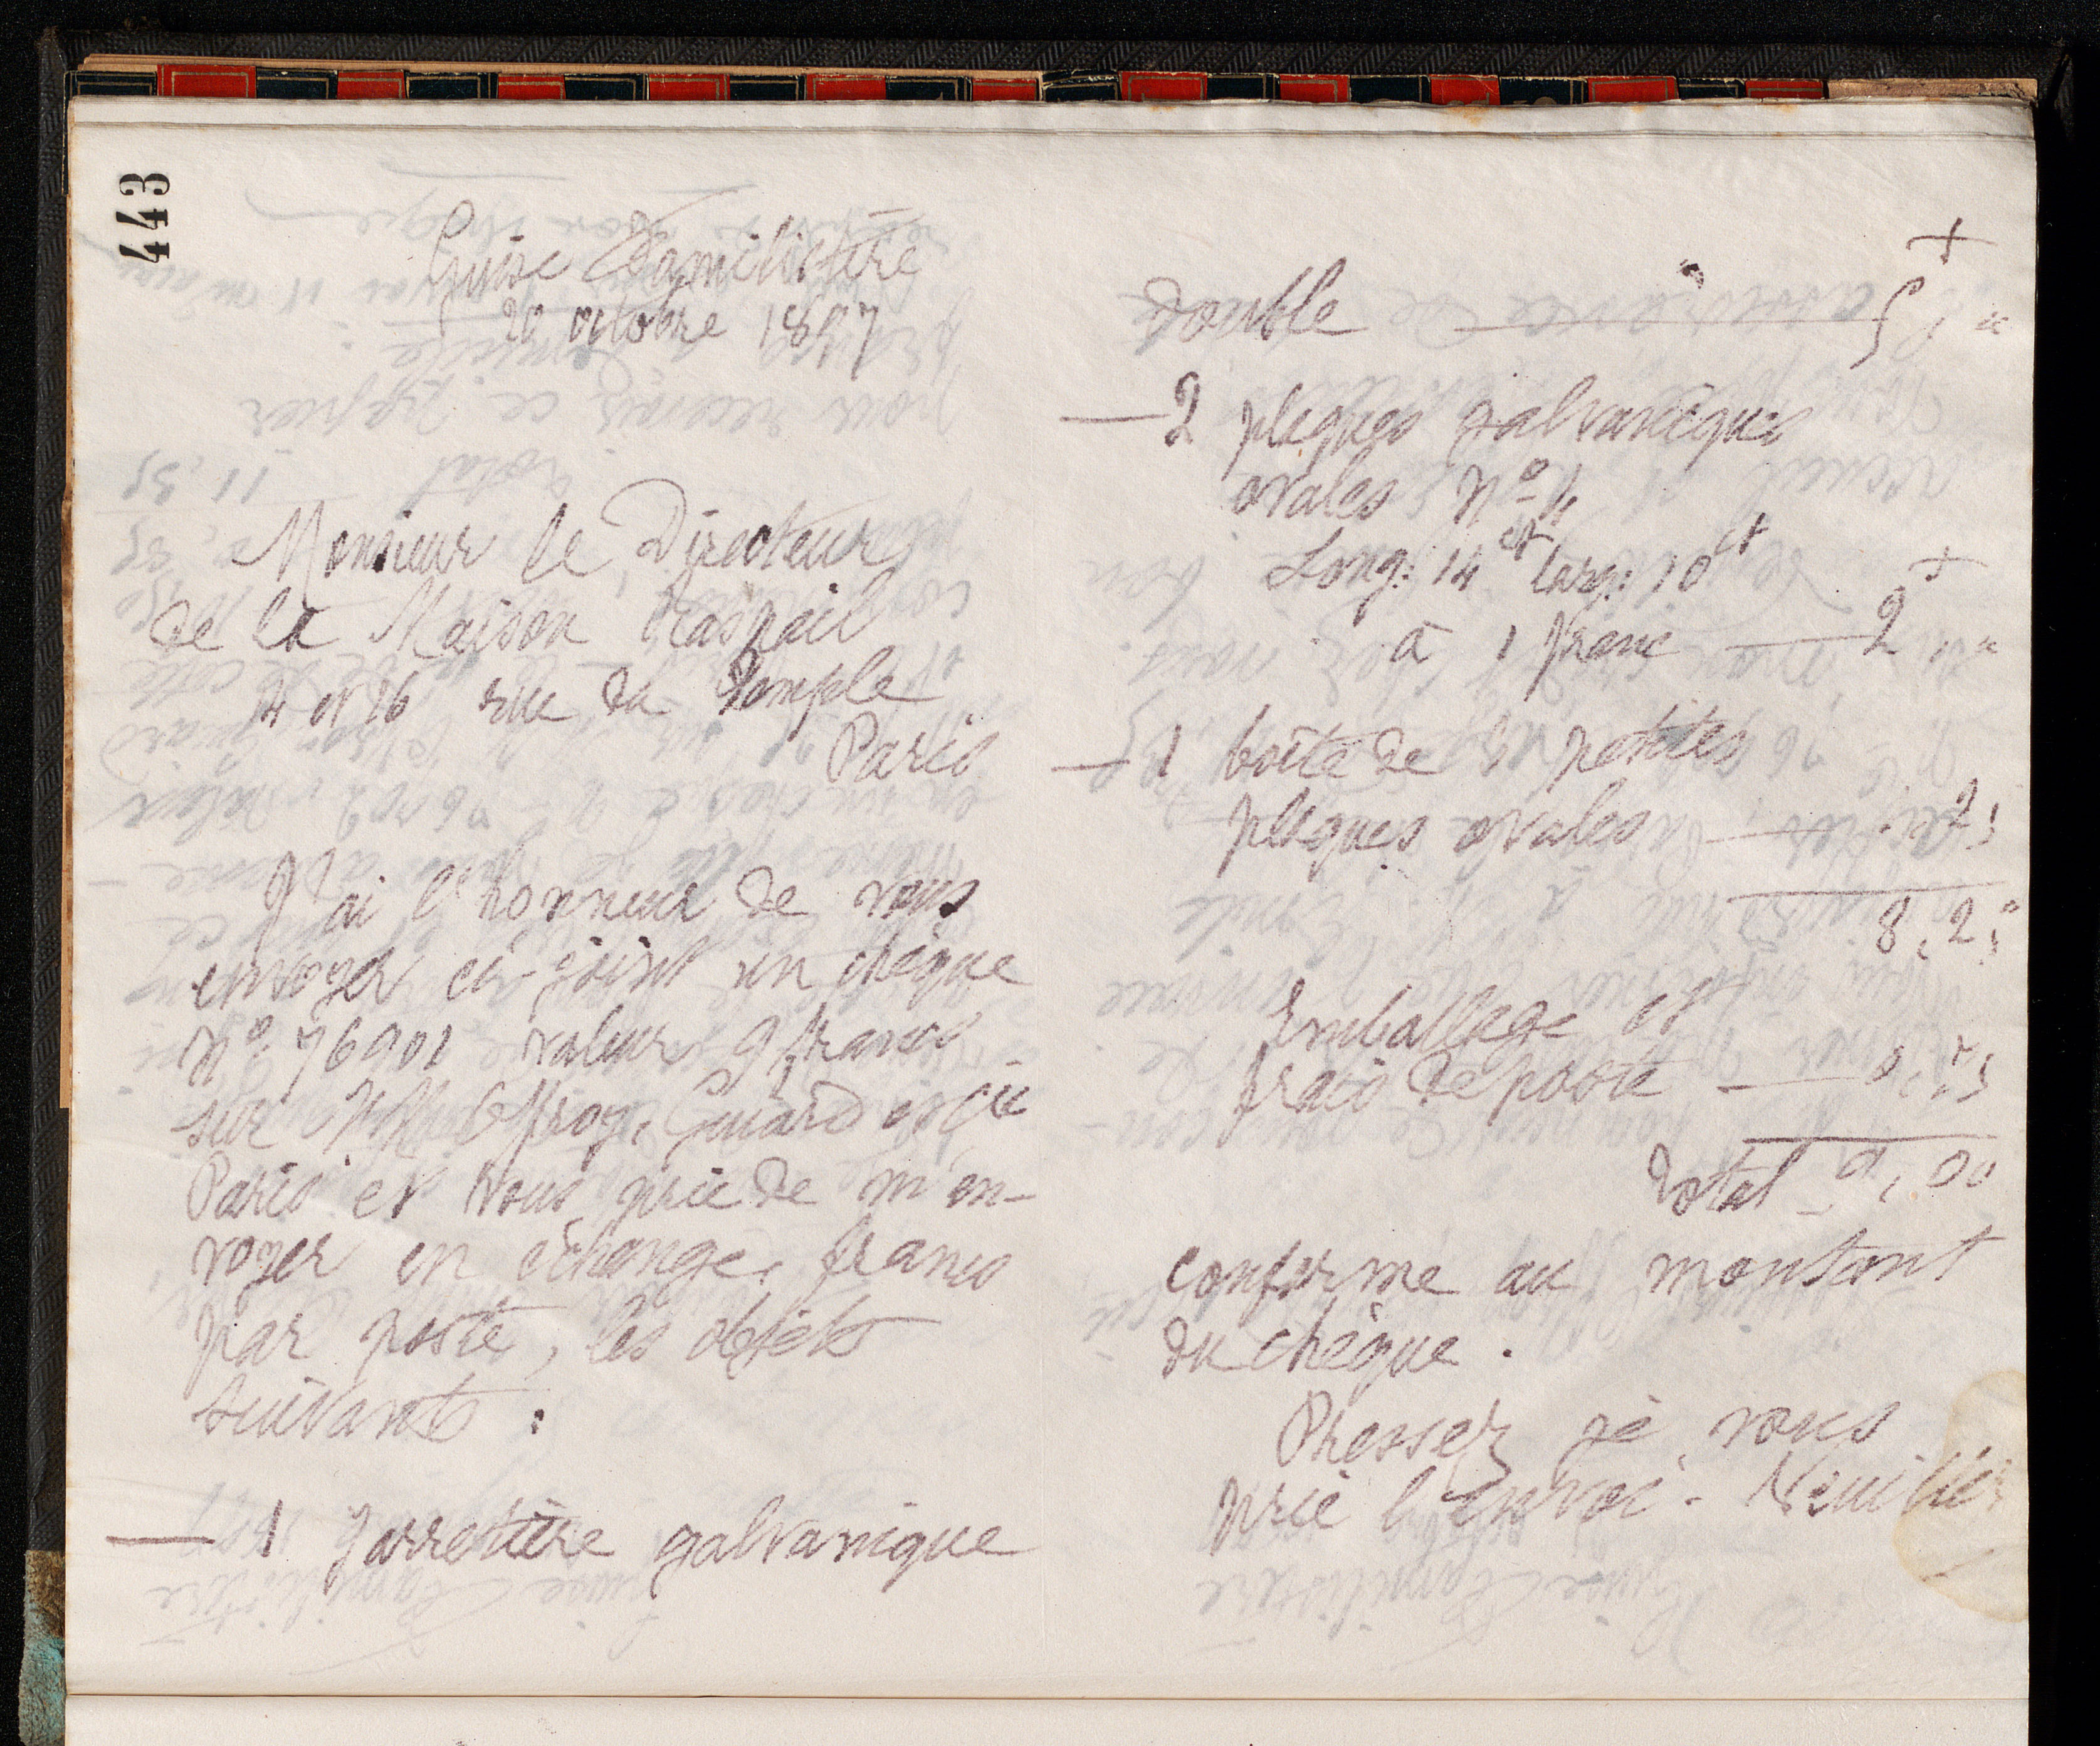 443
Guise Familistère
20 octobre 1897
Monsieur le Directeur
de la Maison Raspail
14 et 16 rue du Temple
Paris
J'ai l'honneur de vous
envoyer ci-joint un chèque
Nº 76901 valeur 9 francs
sur MM Offroy, Guiard et Cie
Paris et vous prie de m'en-
voyer en échange, franco
par poste, les objets
suivants :
— 1 jarretière galvanique
double — 5 "
— 2 plaques galvaniques
ovales Nº 4
Long: 14 ct larg: 10 ct
à 1 franc — 2 "
— 1 boîte de petites
plaques ovales —
8,25
Emballage et
frais de poste — 0,75
Total 9,00
conforme au montant
du chèque.
Pressez je vous
prie l'envoi. Veuillez